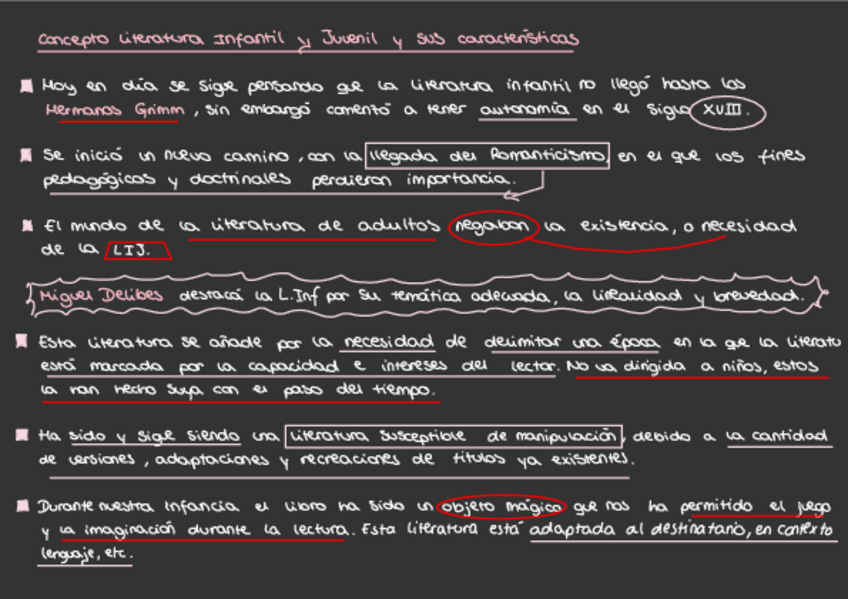 Concepto Literatura Infantil y Juvenil y sus características
Hoy en día se sigue pensando que la literatura infantil no llegó hasta los
Hermanos Grimm, sin embargo comenzó a tener autonomía en el siglo XVIII.
Se inició un nuevo camino, con la llegada del Romanticismo, en el que los fines
pedagógicos y doctrinales perdieron importancia.
El mundo de la literatura de adultos negaban la existencia, o necesidad
de la LIJ.
Miguel Delibes destaca la L.Inf por su temática adecuada, la linealidad y brevedad.
Esta literatura se añade por la necesidad de delimitar una época en la que la literatu
está marcada por la capacidad e intereses del lector. No va dirigida a niños, estos
la han hecho suya con el paso del tiempo.
Ha sido y sigue siendo una literatura susceptible de manipulación, debido a la cantidad
de versiones, adaptaciones y recreaciones de títulos ya existentes.
Durante nuestra infancia el libro ha sido un objeto mágico que nos ha permitido el juego
y la imaginación durante la lectura. Esta literatura está adaptada al destinatario, en contexto
lenguaje, etc.